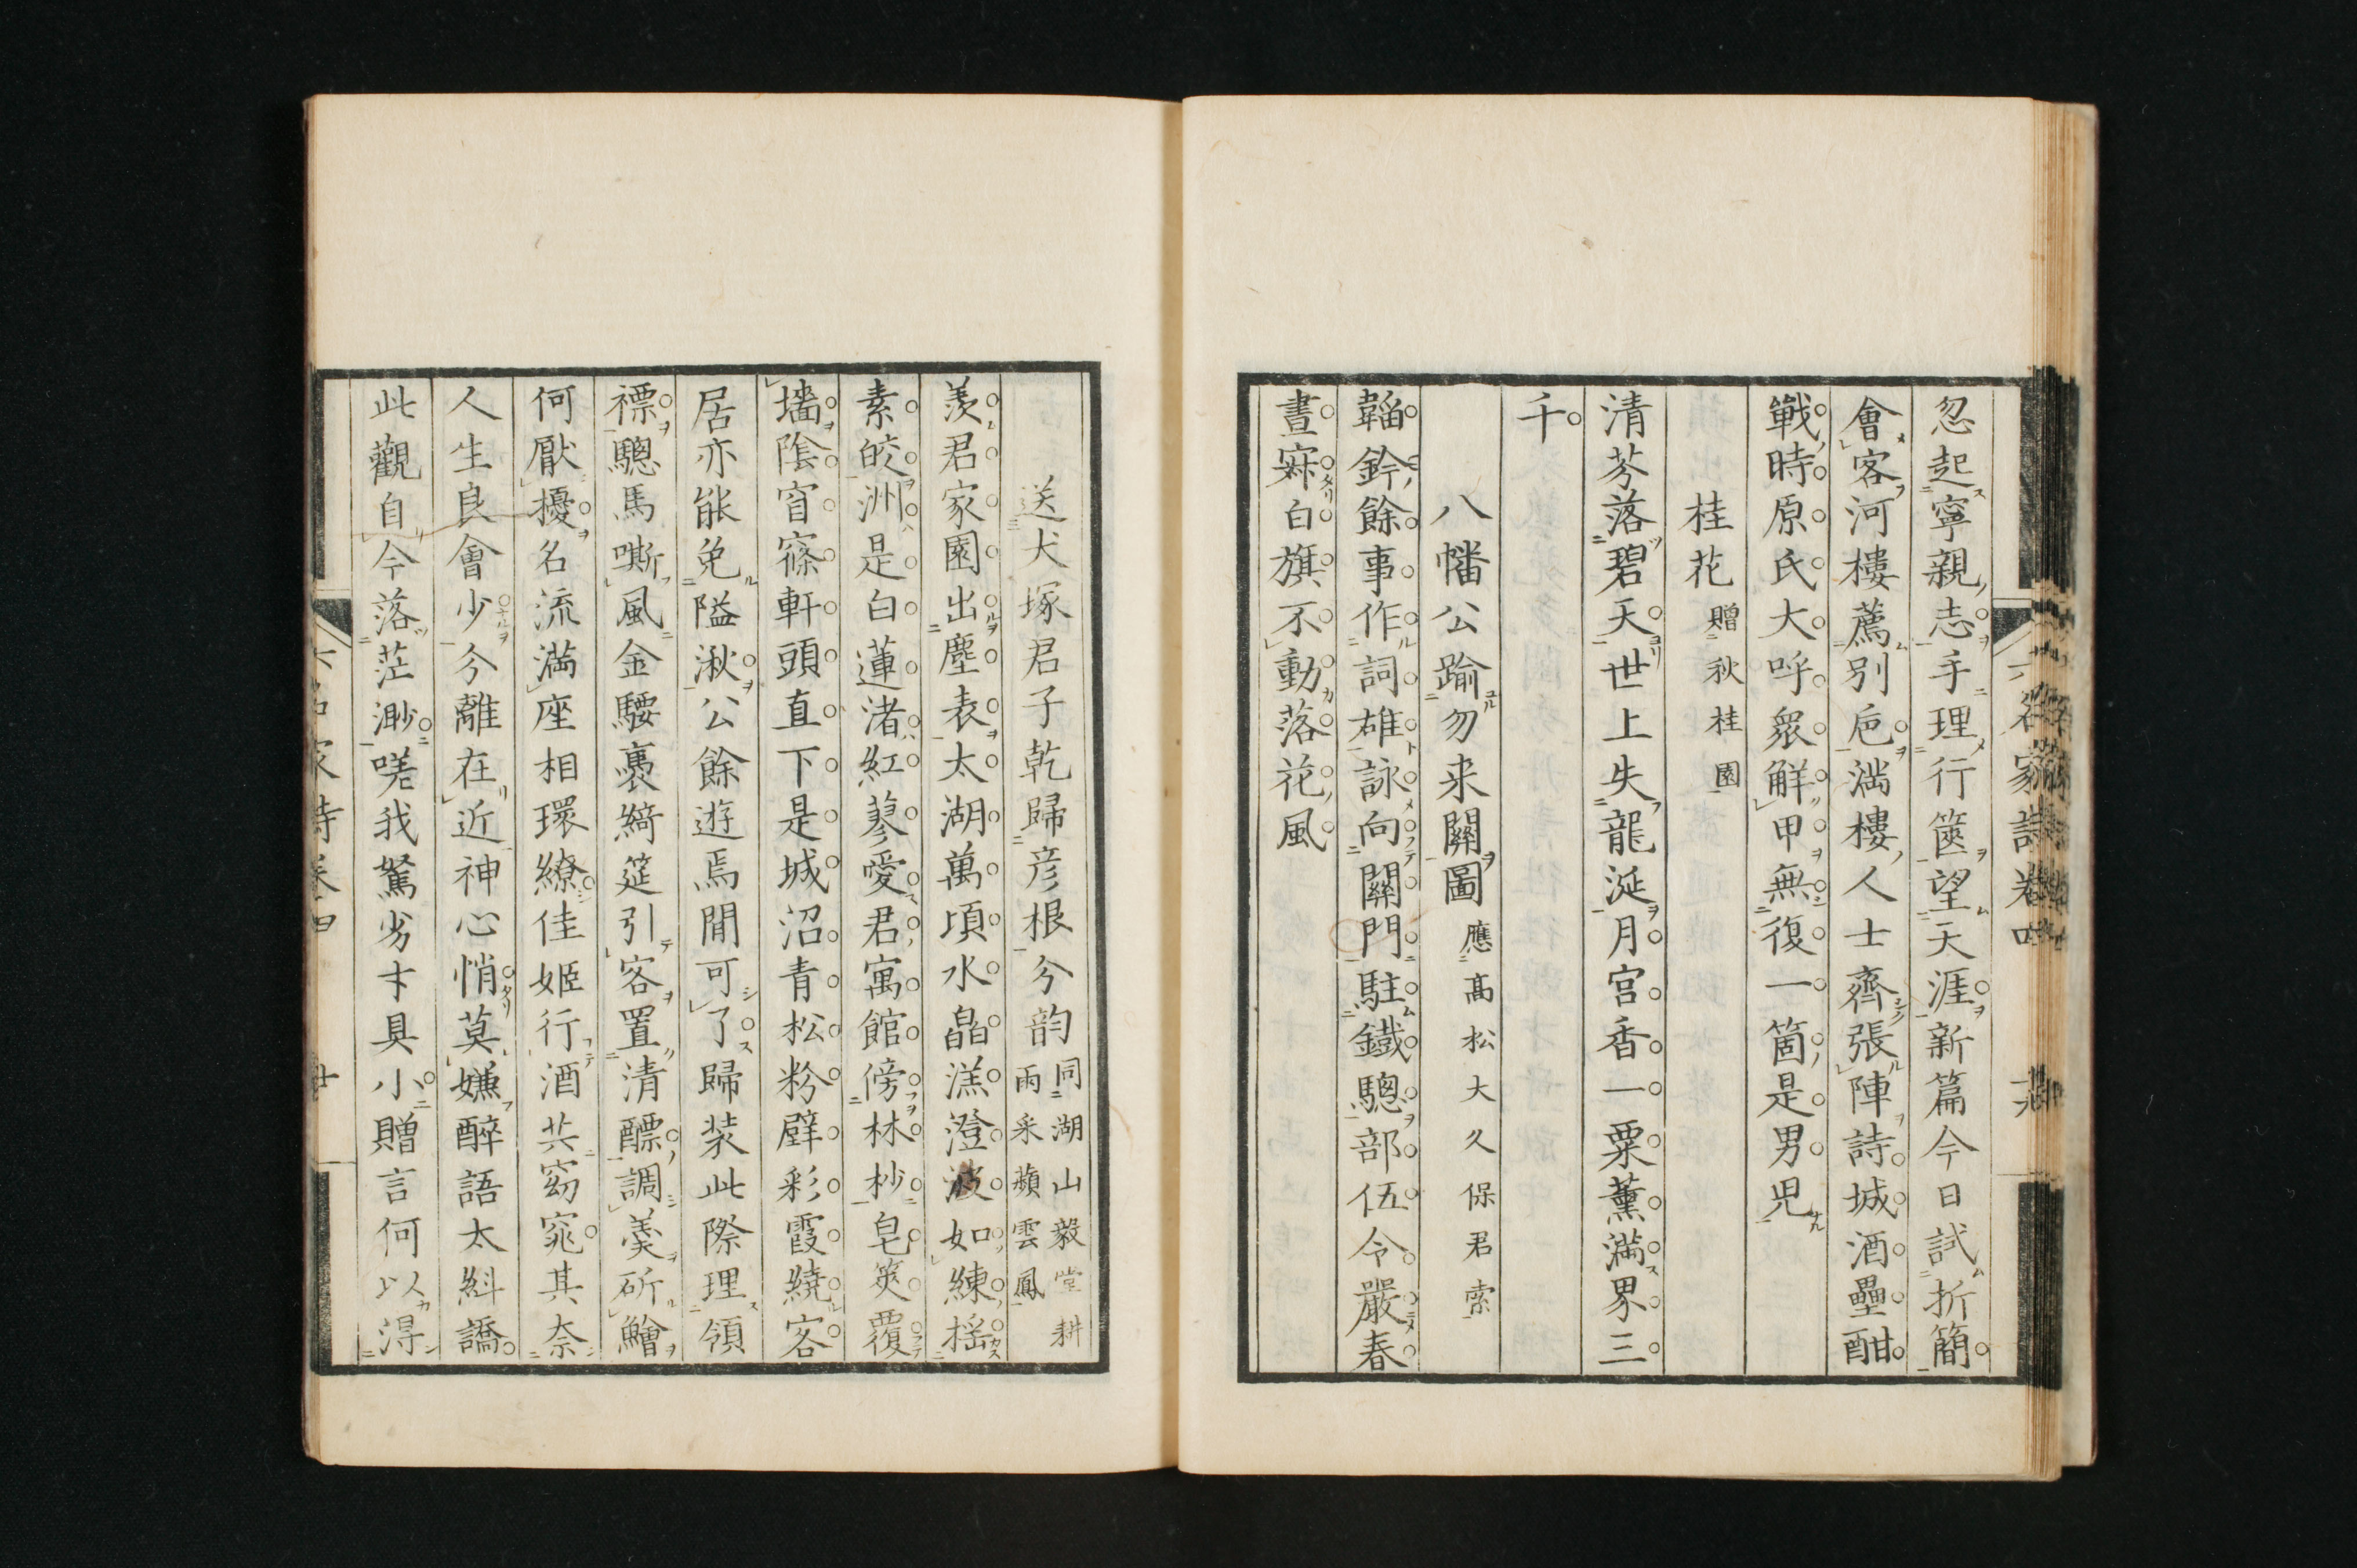 忽起寧親志手理行篋望天涯新篇今日試折簡
會客河樓薦別巵満樓人士齊張陣詩城酒壘酣
戰時原氏大呼衆解甲無復一箇是男児
桂花 贈秋桂園
清芬落碧天世上失龍涎月宮香一粟薫満界三
千
八幡公踰勿来關圖 應髙松大久保君索
韜鈐餘事作詞雄詠向關門駐鐵驄部伍令嚴春
晝寂白旗不動落花風
送犬塚君子乾歸彦根分韵 同湖山毅堂耕雨采蘋雲鳳
羨君家園出塵表太湖萬頃水皛溔澄波如練揺
素皎洲是白蓮渚紅蓼愛君寓館傍林杪皂筴覆
墻陰窅窱軒頭直下是城沼青松粉壁彩霞繞客
居亦能免隘湫公餘遊焉閒可了歸装此際理領
褾驄馬嘶風金騕褭綺筵引客置清醥調羮斫鱠
何厭擾名流満座相環繚佳姫行酒共窈窕其奈
人生良會少今離在近神心悄莫嫌醉語太糾譑
此觀自今落茫渺嗟我駑劣才具小贈言何以淂
六名家詩巻四